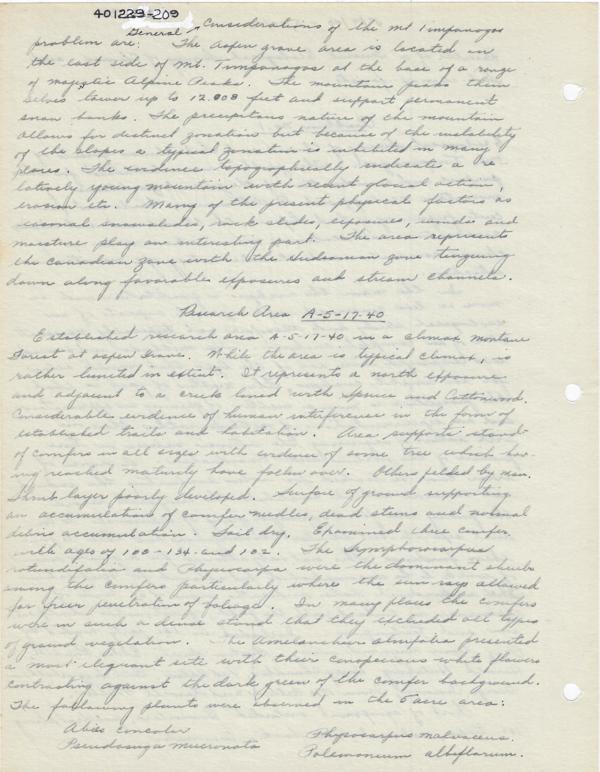 401229-209
General Considerations of the Mt Timpanogos
problem are: The Aspen grove area is located in
the east side of Mt. Timpanogos at the base of a range
of majestic Alpine Peaks. The mountain peaks them
selves tower up to 12.008 feet and support permanent
snow banks. The precipitous nature of the mountain
allows for distinct zonation but because of the instability
of the slopes a typical zonation is inhibited in many
places. The evidence topographically indicate a re
latively young mountain with recent glacial action,
erosion etc. Many of the present physical factors as
seasonal snowslides, rock slides, exposures, winds and
moisture play an interesting part. The area represents
the Canadian zone with the Hudsonian zone
down along favorable exposures and stream channels.
Research Area A-5-17-40
Established research area A-5-17-40 in a climax montane
Forest at aspen Grove. While the area is typical climax, is
rather limited in extent. It represents a north exposure
and adjacent to a creek lined with Spruce and Cottonwood.
Considerable evidence of human interference in the form of
established trails and habitation. Area supports stand
of conifers in all sizes with evidence of some tree which hav-
ing reached maturity have fallen over. Others felled by man.
Shrub layer poorly developed. Surface of ground supporting
an accumulation of conifer needles, dead stems and normal
debris accumulation. Soil dry. Examined three conifer
with ages of 100-134-and 102. The Symphorocarpus
rotundifolia and Physocarpa were the dominant shrubs
among the conifers particularly where the sun rays allowed
for freer penetration of foliage. In many places the conifers
were in such a dense stand that they excluded all types
of ground vegetation. The Amelanchier alnifolia presented
a most elegant site with their conspecious white flowers
contrasting against the dark green of the conifer background.
The following plants were observed in the 5 acre area:
Abies concolor Physocarpus malvaceus.
Pseudosuga mucronata Polemonium albiflorum.